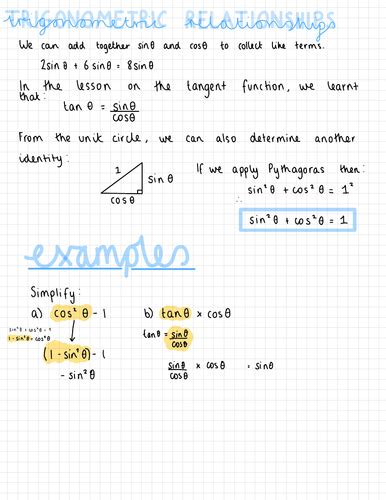 TRIGONOMETRIC RELATIONSHIPS
trigonometric relationships
We can add together sinθ and cosθ to collect like terms.
2sinθ + 6sinθ = 8sinθ
In the lesson on the tangent function, we learnt
that:
tan θ = sinθ/cosθ
From the unit circle, we can also determine another
identity:
If we apply Pythagoras then:
1
sin θ
cos θ
sin²θ + cos²θ = 1²
∴
sin²θ + cos²θ = 1
examples
Simplify:
a) cos²θ - 1
b) tanθ × cosθ
sin²θ + cos²θ = 1
1 - sin²θ = cos²θ
tanθ = sinθ/cosθ
(1 - sin²θ) - 1
- sin²θ
sinθ/cosθ × cosθ = sinθ